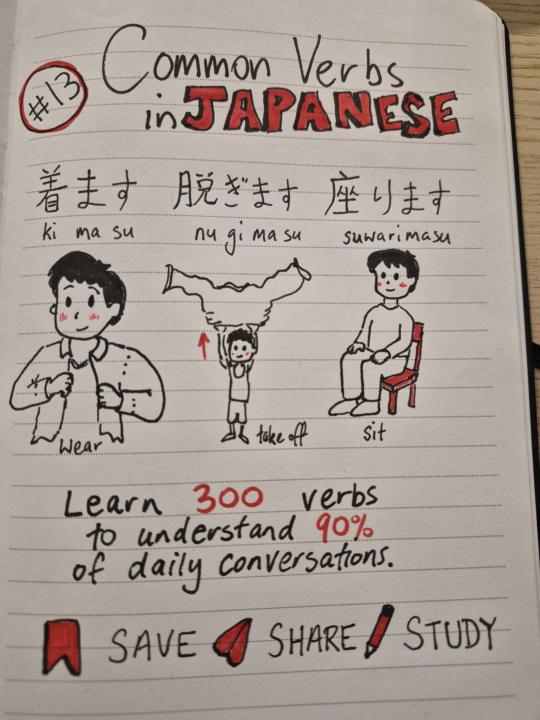 #13
Common Verbs
in JAPANESE
着ます 脱ぎます 座ります
ki ma su nu gi ma su suwarimasu
wear take off sit
Learn 300 verbs
to understand 90%
of daily conversations.
SAVE SHARE STUDY